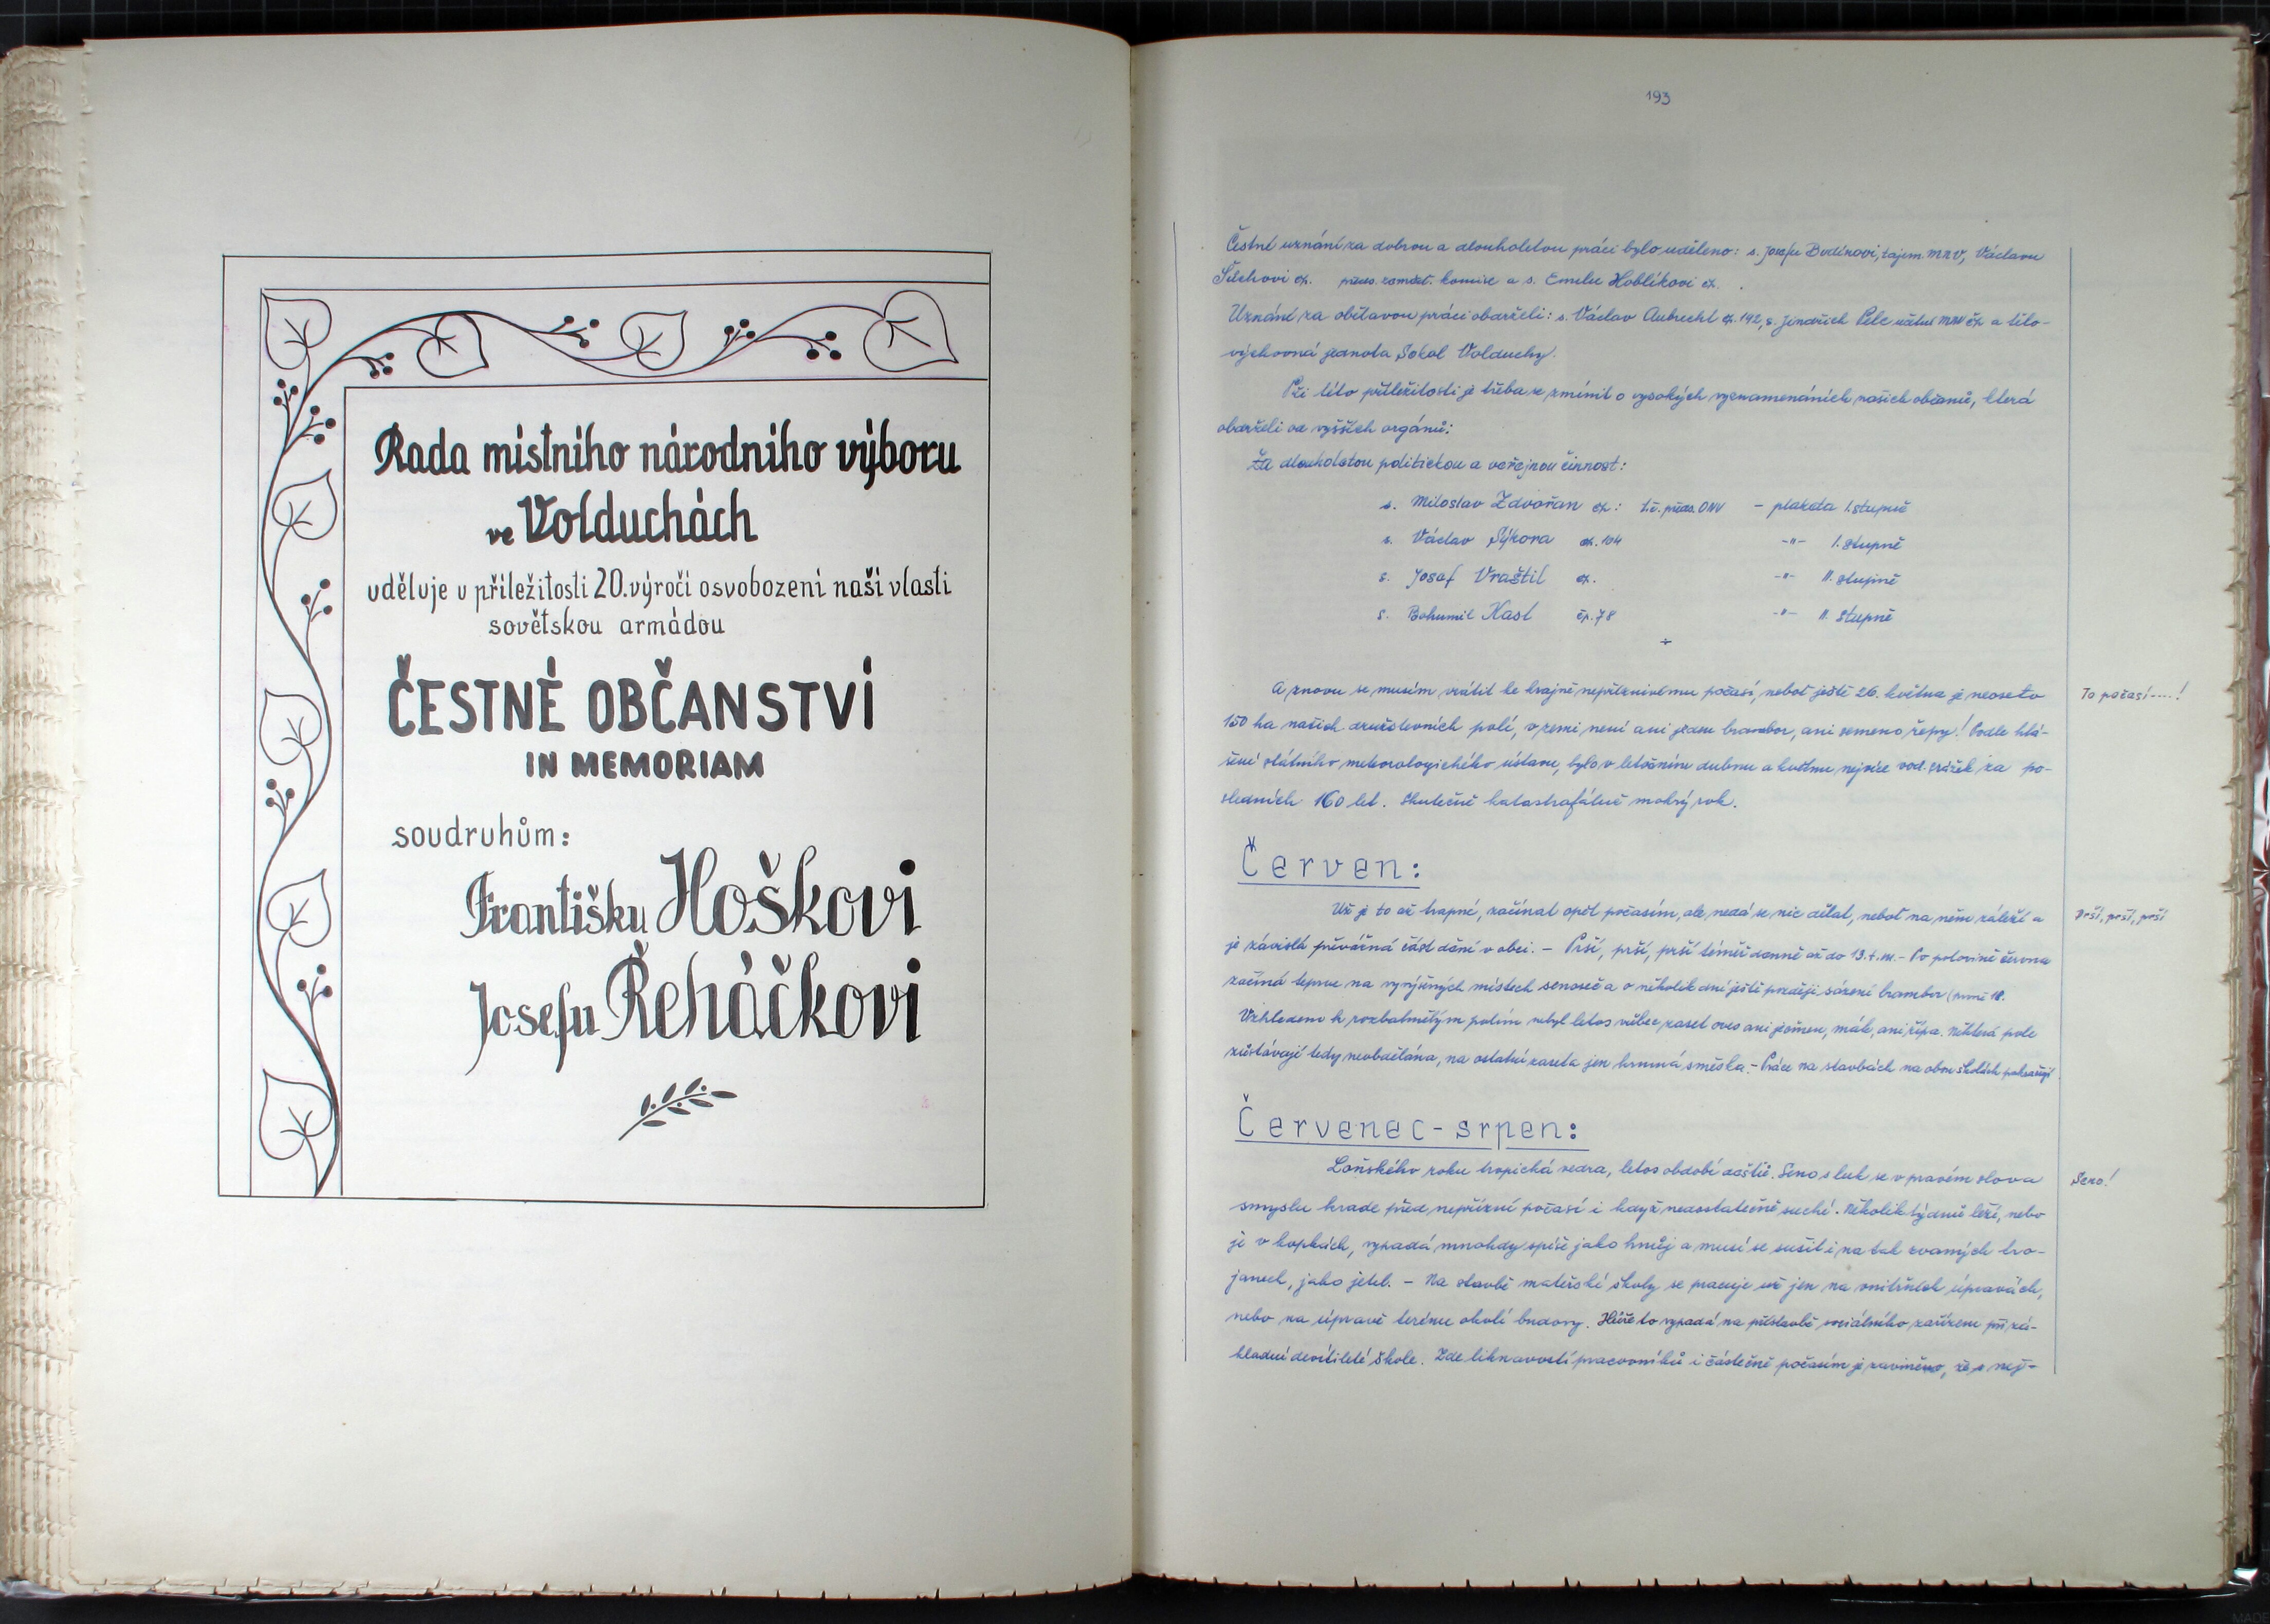 Rada místního národního výboru
ve Volduchách
uděluje u příležitosti 20. výročí osvobození naší vlasti
sovětskou armádou
ČESTNÉ OBČANSTVÍ
IN MEMORIAM
soudruhům:
Františku Hoškovi
Josefu Řeháčkovi
193
Čestné uznání za dobrou a dlouholetou práci bylo uděleno: s. Josefu Budínovi, tajem. MNV, Václavu
Šilhovi čp. před. zeměd. komise a s. Emilu Hoblíkovi čp.
Uznání za obětavou práci obdrželi: s. Václav Aubrecht čp. 142, s. Jindřich Pelc účetní MNV čp a tělo-
výchovná jednota Sokol Volduchy.
Při této příležitosti je třeba se zmínit o vysokých vyznamenáních našich občanů, která
obdrželi od vyšších orgánů:
Za dlouholetou politickou a veřejnou činnost:
s. Miloslav Zdvořan čp.: t.č. před. ONV - plaketa I. stupně
s. Václav Sýkora čp. 104 -"- I. stupně
s. Josef Vraštil čp. -"- II. stupně
s. Bohumil Kasl čp. 78 -"- II. stupně
A znovu se musím vrátit ke krajně nepříznivému počasí, neboť ještě 26. května je neoseto
To počasí----!
150 ha našich družstevních polí, v zemi není ani jeden brambor, ani semeno řepy! Podle hlá-
šení státního meteorologického ústavu, bylo v letošním dubnu a květnu nejvíce vod. srážek za po-
sledních 160 let. Skutečně katastrofálně mokrý rok.
Červen:
Už je to až trapné, začínat opět počasím, ale nedá se nic dělat, neboť na něm záleží a
Prší, prší, prší
je závislá převážná část dění v obci. - Prší, prší, prší téměř denně až do 13. t.m. - Po polovině června
začíná teprve na vyvýšených místech senoseč a o několik dní ještě později sázení brambor (první 18.
Vzhledem k rozbahnělým polím nebyl letos vůbec zaset oves ani ječmen, mák, ani řepa. Některá pole
zůstávají tedy neobdělána, na ostatní zaseta jen krmná směska. - Práce na stavbách na obou školách pokračují.
Červenec-srpen:
Loňského roku tropická vedra, letos období dešťů. Seno s luk se v pravém slova
Seno!
smyslu krade před nepřízní počasí i když nedostatečně suché. Několik týdnů leží, nebo
je v kopkách, vypadá mnohdy spíše jako hnůj a musí se sušit i na tak zvaných tro-
janech, jako jetel. - Na stavbě mateřské školy se pracuje už jen na vnitřních úpravách,
nebo na úpravě terénu okolí budovy. Hůře to vypadá na přístavbě sociálního zařízení při zá-
kladní devítileté škole. Zde liknavostí pracovníků i částečně počasím je zaviněno, že s nej-